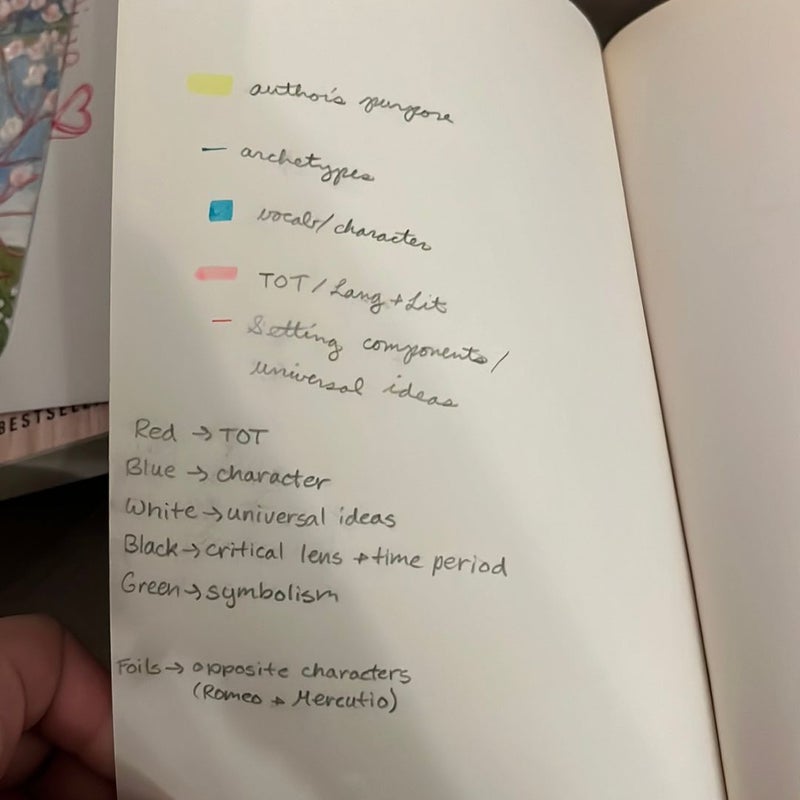 BESTSELL
author's purpose
archetypes
vocab/character
TOT/Lang + Lit
Setting components/
universal ideas
Red → TOT
Blue → character
White → universal ideas
Black → critical lens + time period
Green → symbolism
Foils → opposite characters
(Romeo + Mercutio)